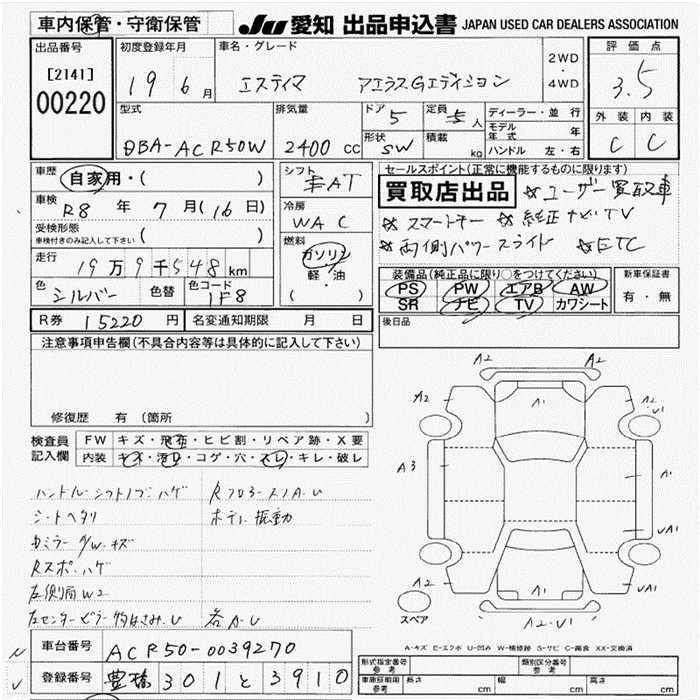 車内保管・守衛保管
JU 愛知 出品申込書 JAPAN USED CAR DEALERS ASSOCIATION
出品番号
[2141]
00220
初度登録年月
19 6月
車名・グレード
エスティマ アエラスGエディション
2WD・4WD
評価点
3.5
外装 内装
C C
型式
DBA-ACR50W
排気量
2400 cc
ドア 5
定員 5人
形状 SW
積載 kg
ディーラー・並行
モデル年式 年
ハンドル 左・右
車歴
自家用・( )
車検
R8年 7月(16日)
受検形態
車検付きのみ記入して下さい ( )
走行
19万9千548km
色 シルバー 色替 色コード 1F8
シフト
AT
冷房
WAC
燃料
ガソリン
軽・油
( )
セールスポイント(正常に機能するものに限ります)
買取店出品 ☆ユーザー買取車
☆スマートキー ☆純正ナビTV
☆両側パワースライド ☆ETC
装備品(純正品に限り○をつけてください)
PS PW エアB AW
SR ナビ TV カワシート
新車保証書
有・無
R券 15220円 名変通知期限 月 日
後日品
注意事項申告欄(不具合内容等は具体的に記入して下さい)
修復歴 有 (箇所
検査員記入欄
FW キズ・飛石・ヒビ割・リペア跡・X要
内装 キズ・汚れ・コゲ・穴・スレ・キレ・破レ
ハンドル シフトノブ ハゲ
シートヘタリ
R スポ ハゲ
左側面W2
A2 A2
A2 A1 A2 U1
A3 A1 A1
A2 UA1
A2・U1
スペア
A-キズ E-エクボ U-凹み W-補修跡 S-サビ C-腐食 XX-交換済
車台番号 ACR50-0039270
登録番号 豊橋 301 と 3910
形式指定番号 参考
類別区分番号 参考
車庫証明用 参考 長さ cm 幅 cm 高さ cm